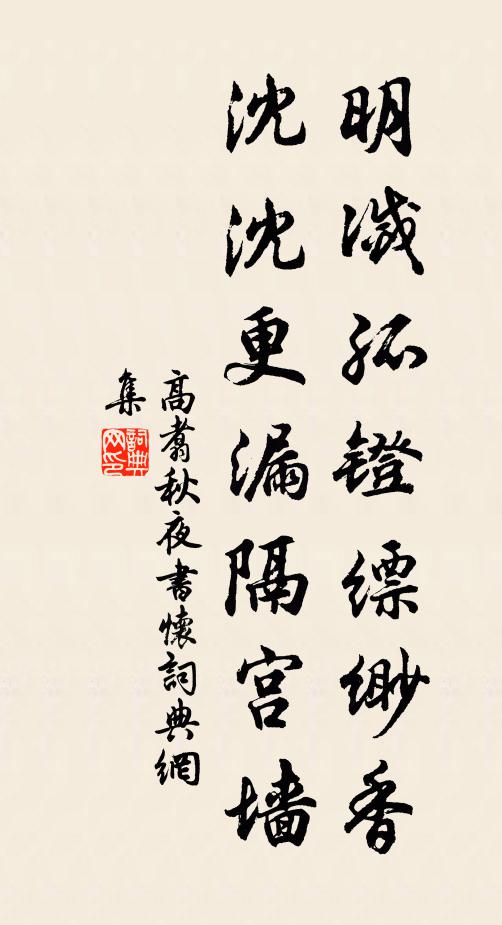 明滅孤鐙縹緲香
沈沈更漏隔宮墻
高翥秋夜書懷詞典網
集
詞典網印